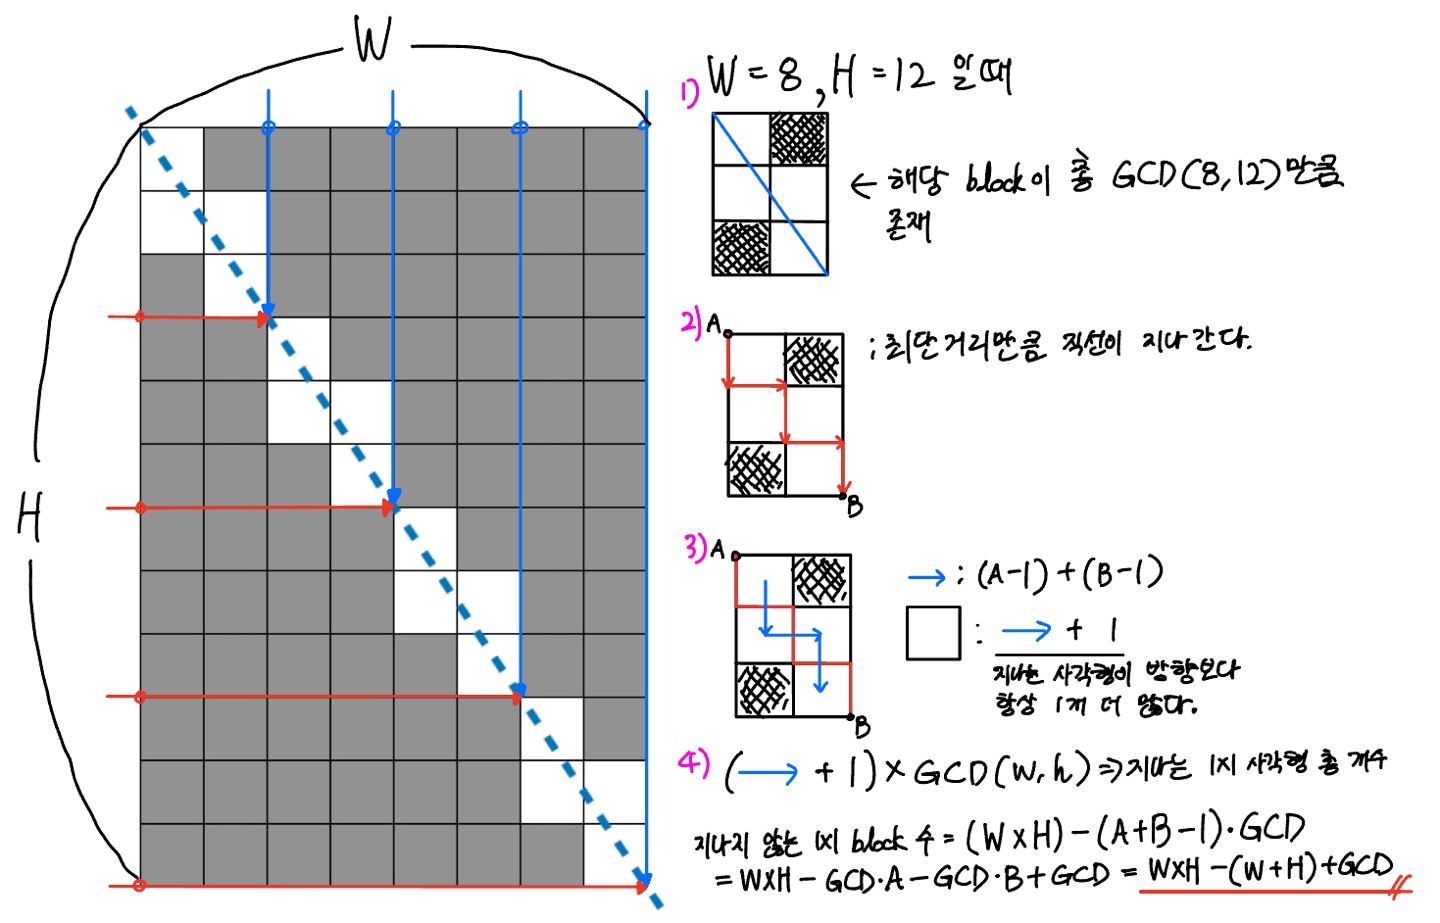 W
H
1) W = 8, H = 12 일 때
← 해당 block이 총 GCD(8,12)만큼
존재
2) A
; 최단거리만큼 직선이 지나간다.
B
3) A
→ : (A-1)+(B-1)
□ : → + 1
지나는 사각형이 방향보다
항상 1개 더 많다.
B
4) (→ + 1) × GCD(w,h) ⇒ 지나는 1x1 사각형 총 개수
지나지 않는 1x1 block 수 = (W×H) - (A+B-1)·GCD
= W×H - GCD·A - GCD·B + GCD = W×H - (W+H) + GCD